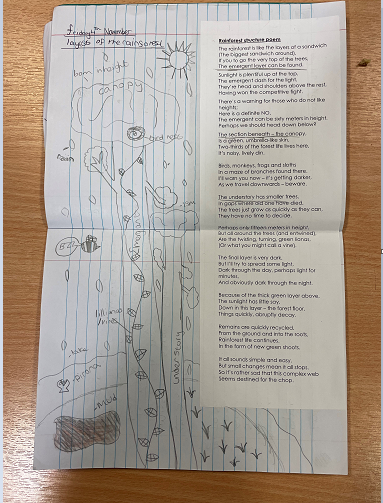 Friday 4th November
layers of the rainforest
canopy
mud
Rainforest structure poem
The rainforest is like the layers of a sandwich
(The biggest sandwich around).
If you to go the very top of the trees,
The emergent layer can be found.
Sunlight is plentiful up at the top.
The emergent dash for the light.
They're head and shoulders above the rest,
Having won the competitive fight.
There's a warning for those who do not like
heights:
Here is a definite NO.
The emergent can be sixty meters in height.
Perhaps we should head down below?
The section beneath – the canopy,
Is a green, umbrella-like skin.
Two-thirds of the forest life lives here;
It's noisy, lively din.
Birds, monkeys, frogs and sloths
In a maze of branches found there.
I'll warn you now – it's getting darker,
As we travel downwards – beware.
The understory has smaller trees,
In gaps where old one have died.
The trees just grow as quickly as they can,
They have no time to decide.
Perhaps only fifteen meters in height,
But all around the trees (and entwined),
Are the twisting, turning, green lianas.
(Or what you might call a vine).
The final layer is very dark,
But I'll try to spread some light.
Dark through the day, perhaps light for
minutes.
And obviously dark through the night.
Because of the thick green layer above,
The sunlight has little say.
Down in this layer – the forest floor,
Things quickly, abruptly decay.
Remains are quickly recycled,
From the ground and into the roots.
Rainforest life continues,
In the form of new green shoots.
It all sounds simple and easy,
But small changes mean it all stops.
So it's rather sad that this complex web
Seems destined for the chop.